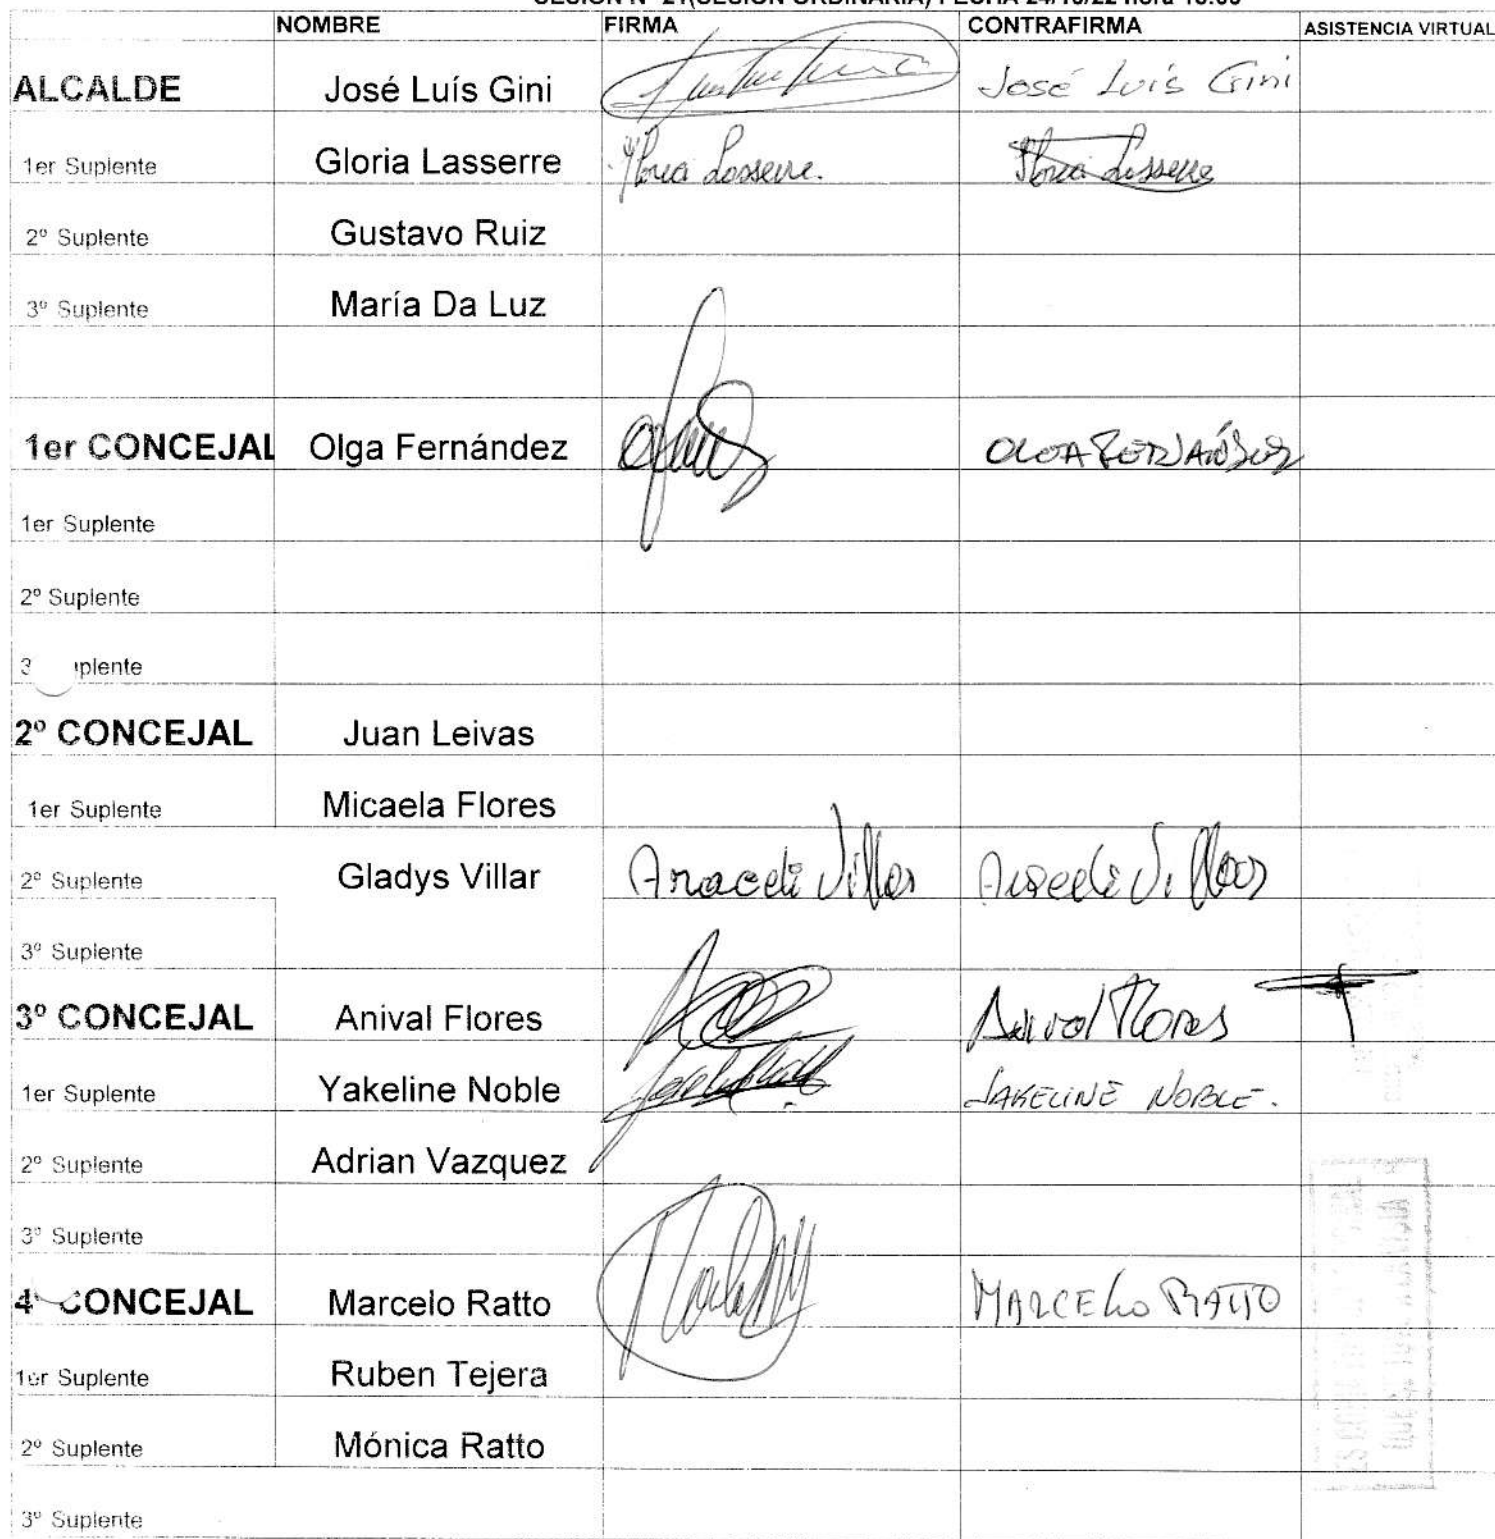 SESIÓN Nº 21(SESIÓN ORDINARIA) FECHA 24/10/22 hora
NOMBRE FIRMA CONTRAFIRMA ASISTENCIA VIRTUAL
ALCALDE José Luís Gini José Luís Gini
1er Suplente Gloria Lasserre Gloria Lasserre. Gloria Lasserre
2º Suplente Gustavo Ruiz
3º Suplente María Da Luz
1er CONCEJAL Olga Fernández OLGA FERNÁNDEZ
1er Suplente
2º Suplente
3 uplente
2º CONCEJAL Juan Leivas
1er Suplente Micaela Flores
2º Suplente Gladys Villar Araceli Villar Araceli Villar
3º Suplente
3º CONCEJAL Anival Flores Anival Flores
1er Suplente Yakeline Noble JAKELINE NOBLE.
2º Suplente Adrian Vazquez
3º Suplente
4º CONCEJAL Marcelo Ratto MARCELO RATTO
1er Suplente Ruben Tejera
2º Suplente Mónica Ratto
3º Suplente